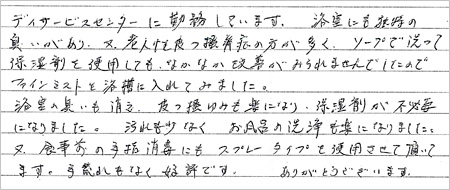 デイサービスセンターに勤務しています。 浴室にも独特の
臭いがあり、又、老人性皮フ掻痒症の方が多く、ソープで洗って
保湿剤を使用しても、なかなか改善がみられませんでしたので
ファインミストを浴槽に入れてみました。
浴室の臭いも消え、皮フ掻ゆみも楽になり、保湿剤が不必要
になりました。 汚れも少なく お風呂の洗浄も楽になりました。
又、食事前の手指消毒にも スプレータイプを使用させて頂いて
ます。手荒れもなく 好評です。 ありがとうございます。